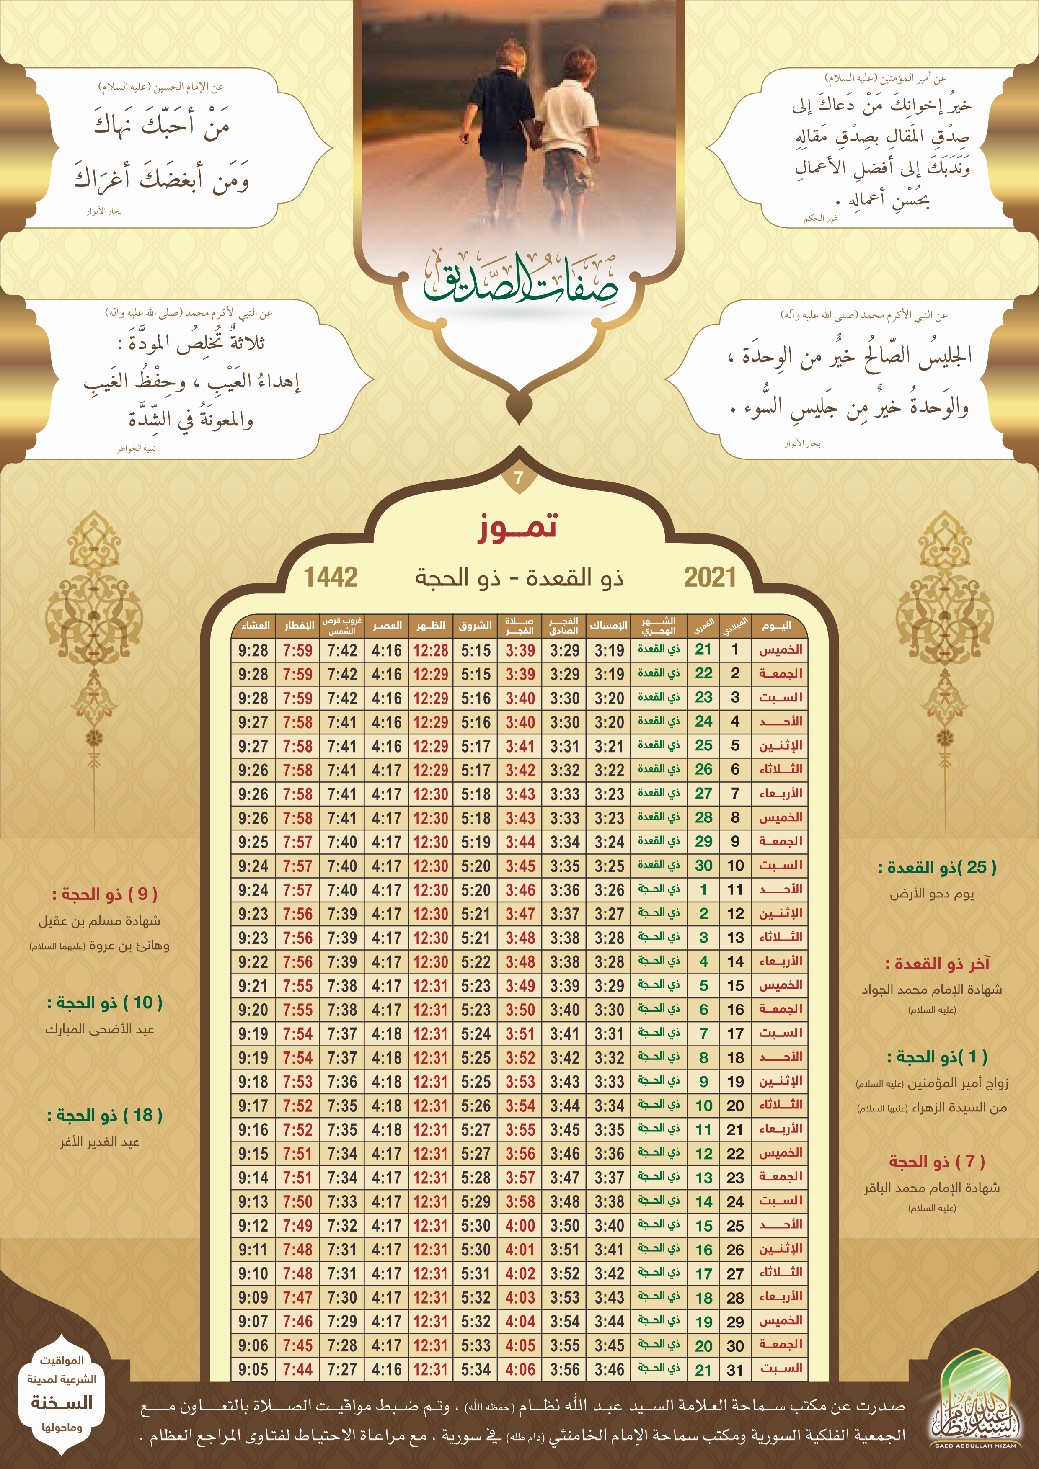 عن أمير المؤمنين (عليه السلام)
خيرُ إخوانِكَ مَنْ دَعاكَ إلى
صِدْقِ المَقالِ بصِدْقِ مَقالِهِ
وَنَدَبَكَ إلى أفضلِ الأعمالِ
بحُسْنِ أعمالِه .
غرر الحكم
عن الإمام الحسين (عليه السلام)
مَنْ أحَبّكَ نَهاكَ
وَمَن أبغضَكَ أغرَاكَ
بحار الأنوار
صفات الصديق
عن النبي الأكرم محمد (صلى الله عليه وآله)
الجليسُ الصّالحُ خيرٌ من الوِحدَة ،
والوَحدةُ خيرٌ مِن جَليسِ السُّوء .
بحار الأنوار
عن النبي الأكرم محمد (صلى الله عليه وآله)
ثلاثةٌ تُخلِصُ المودَّةَ :
إهداءُ العَيْبِ ، وحِفْظُ الغَيبِ
والمعونَةُ في الشِّدَّة
تنبيه الخواطر
7
تمـــوز
2021 ذو القعدة - ذو الحجة 1442
اليـوم الميلادي القمري الشـــهر الهجري الإمساك الفجـــر الصادق صـــلاة الفجـر الشروق الظـهر العصـر غروب قرص الشمس الإفطار العشاء
الخميس 1 21 ذي القعدة 3:19 3:29 3:39 5:15 12:28 4:16 7:42 7:59 9:28
الجمعـة 2 22 ذي القعدة 3:19 3:29 3:39 5:15 12:29 4:16 7:42 7:59 9:28
السـبت 3 23 ذي القعدة 3:20 3:30 3:40 5:16 12:29 4:16 7:42 7:59 9:28
الأحـــد 4 24 ذي القعدة 3:20 3:30 3:40 5:16 12:29 4:16 7:41 7:58 9:27
الإثنـين 5 25 ذي القعدة 3:21 3:31 3:41 5:17 12:29 4:16 7:41 7:58 9:27
الثـلاثاء 6 26 ذي القعدة 3:22 3:32 3:42 5:17 12:29 4:17 7:41 7:58 9:26
الأربعـاء 7 27 ذي القعدة 3:23 3:33 3:43 5:18 12:30 4:17 7:41 7:58 9:26
الخميس 8 28 ذي القعدة 3:23 3:33 3:43 5:18 12:30 4:17 7:41 7:58 9:26
الجمعـة 9 29 ذي القعدة 3:24 3:34 3:44 5:19 12:30 4:17 7:40 7:57 9:25
السـبت 10 30 ذي القعدة 3:25 3:35 3:45 5:20 12:30 4:17 7:40 7:57 9:24
الأحـــد 11 1 ذي الحـجة 3:26 3:36 3:46 5:20 12:30 4:17 7:40 7:57 9:24
الإثنـين 12 2 ذي الحـجة 3:27 3:37 3:47 5:21 12:30 4:17 7:39 7:56 9:23
الثـلاثاء 13 3 ذي الحـجة 3:28 3:38 3:48 5:21 12:30 4:17 7:39 7:56 9:23
الأربعـاء 14 4 ذي الحـجة 3:28 3:38 3:48 5:22 12:30 4:17 7:39 7:56 9:22
الخميس 15 5 ذي الحـجة 3:29 3:39 3:49 5:23 12:31 4:17 7:38 7:55 9:21
الجمعـة 16 6 ذي الحـجة 3:30 3:40 3:50 5:23 12:31 4:17 7:38 7:55 9:20
السـبت 17 7 ذي الحـجة 3:31 3:41 3:51 5:24 12:31 4:18 7:37 7:54 9:19
الأحـــد 18 8 ذي الحـجة 3:32 3:42 3:52 5:25 12:31 4:18 7:37 7:54 9:19
الإثنـين 19 9 ذي الحـجة 3:33 3:43 3:53 5:25 12:31 4:18 7:36 7:53 9:18
الثـلاثاء 20 10 ذي الحـجة 3:34 3:44 3:54 5:26 12:31 4:18 7:35 7:52 9:17
الأربعـاء 21 11 ذي الحـجة 3:35 3:45 3:55 5:27 12:31 4:18 7:35 7:52 9:16
الخميس 22 12 ذي الحـجة 3:36 3:46 3:56 5:27 12:31 4:17 7:34 7:51 9:15
الجمعـة 23 13 ذي الحـجة 3:37 3:47 3:57 5:28 12:31 4:17 7:34 7:51 9:14
السـبت 24 14 ذي الحـجة 3:38 3:48 3:58 5:29 12:31 4:17 7:33 7:50 9:13
الأحـــد 25 15 ذي الحـجة 3:40 3:50 4:00 5:30 12:31 4:17 7:32 7:49 9:12
الإثنـين 26 16 ذي الحـجة 3:41 3:51 4:01 5:30 12:31 4:17 7:31 7:48 9:11
الثـلاثاء 27 17 ذي الحـجة 3:42 3:52 4:02 5:31 12:31 4:17 7:31 7:48 9:10
الأربعـاء 28 18 ذي الحـجة 3:43 3:53 4:03 5:32 12:31 4:17 7:30 7:47 9:09
الخميس 29 19 ذي الحـجة 3:44 3:54 4:04 5:32 12:31 4:17 7:29 7:46 9:07
الجمعـة 30 20 ذي الحـجة 3:45 3:55 4:05 5:33 12:31 4:17 7:28 7:45 9:06
السـبت 31 21 ذي الحـجة 3:46 3:56 4:06 5:34 12:31 4:16 7:27 7:44 9:05
( 25 )ذو القعدة :
يوم دحو الأرض
آخر ذو القعدة :
شهادة الإمام محمد الجواد
(عليه السلام)
( 1 )ذو الحجة :
زواج أمير المؤمنين (عليه السلام)
من السيدة الزهراء (عليها السلام)
( 7 ) ذو الحجة
شهادة الإمام محمد الباقر
(عليه السلام)
( 9 ) ذو الحجة :
شهادة مسلم بن عقيل
وهانئ بن عروة (عليهما السلام)
( 10 ) ذو الحجة :
عيد الأضحى المبارك
( 18 ) ذو الحجة :
عيد الغدير الأغر
المواقيت
الشرعية لمدينة
السـخنة
وماحولها
صدرت عن مكتب سماحة العلامة السيد عبد الله نظـام (حفظه الله) ، وتم ضبط مواقيت الصلاة بالتعـاون مـــع
الجمعية الفلكية السورية ومكتب سماحة الإمام الخامنئي (دام ظله) في سورية ، مع مراعاة الاحتياط لفتاوى المراجع العظام .
السيد عبد الله نظام
SAED ABDULLAH NIZAM